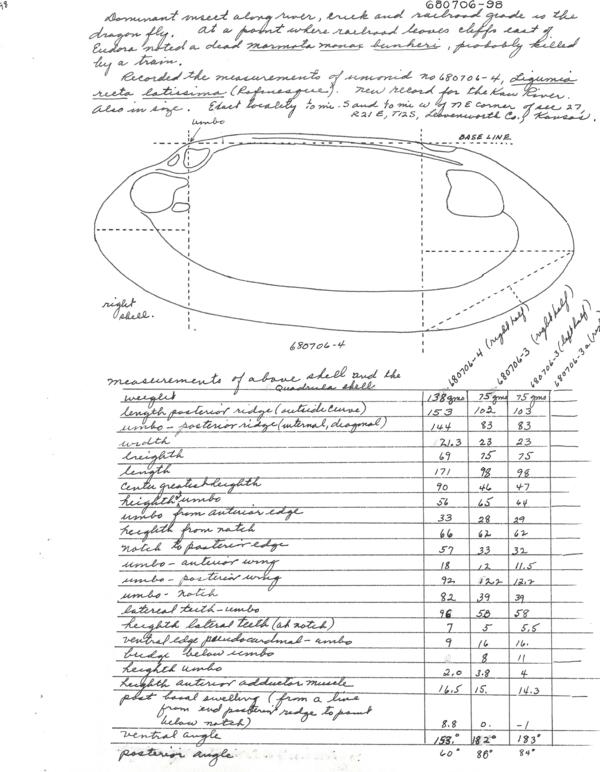 98
680706-98
Dominant insect along river, creek and railroad grade is the
dragon fly. At a point where railroad leaves cliffs east of
Eudora noted a dead marmota monax bunkeri, probably killed
by a train.
Recorded the measurements of unionid no 680706-4, Ligumia
recta latissima (Rafinesque). New record for the Kaw River.
Also in size. Exact locality 70 mi. S and 70 mi W of NE corner of sec 27,
R21E, T12S, Leavenworth Co., Kansas.
umbo
BASE LINE
right
shell.
680706-4
680706-4 (right half)
680706-3 (right half)
680706-3 (left half)
680706-3a
measurements of above shell and the
Quadrula shell
weight 138 gms 75 gms 75 gms
length posterior ridge (outside curve) 153 102 103
umbo - posterior ridge (internal, diagonal) 144 83 83
width 21.3 23 23
heighth 69 75 75
length 171 98 98
center greatest heighth 90 46 47
heighth umbo 56 65 64
umbo from anterior edge 33 28 29
heighth from notch 66 62 62
notch to posterior edge 57 33 32
umbo - anterior wing 18 12 11.5
umbo - posterior wing 92 12.2
umbo - notch 82 39 39
latereal teeth - umbo 96 58 58
heighth lateral teeth (at notch) 7 5 5.5
ventral edge pseudocardinal - umbo 9 16 16.
bridge below umbo 8 11
heighth umbo 2.0 3.8 4
heighth anterior adductor muscle 16.5 15. 14.3
post basal swelling (from a line
from end posterior ridge to point
below notch) 8.8 0. -1
ventral angle 153.° 182° 183°
posterior angle 60° 80° 84°